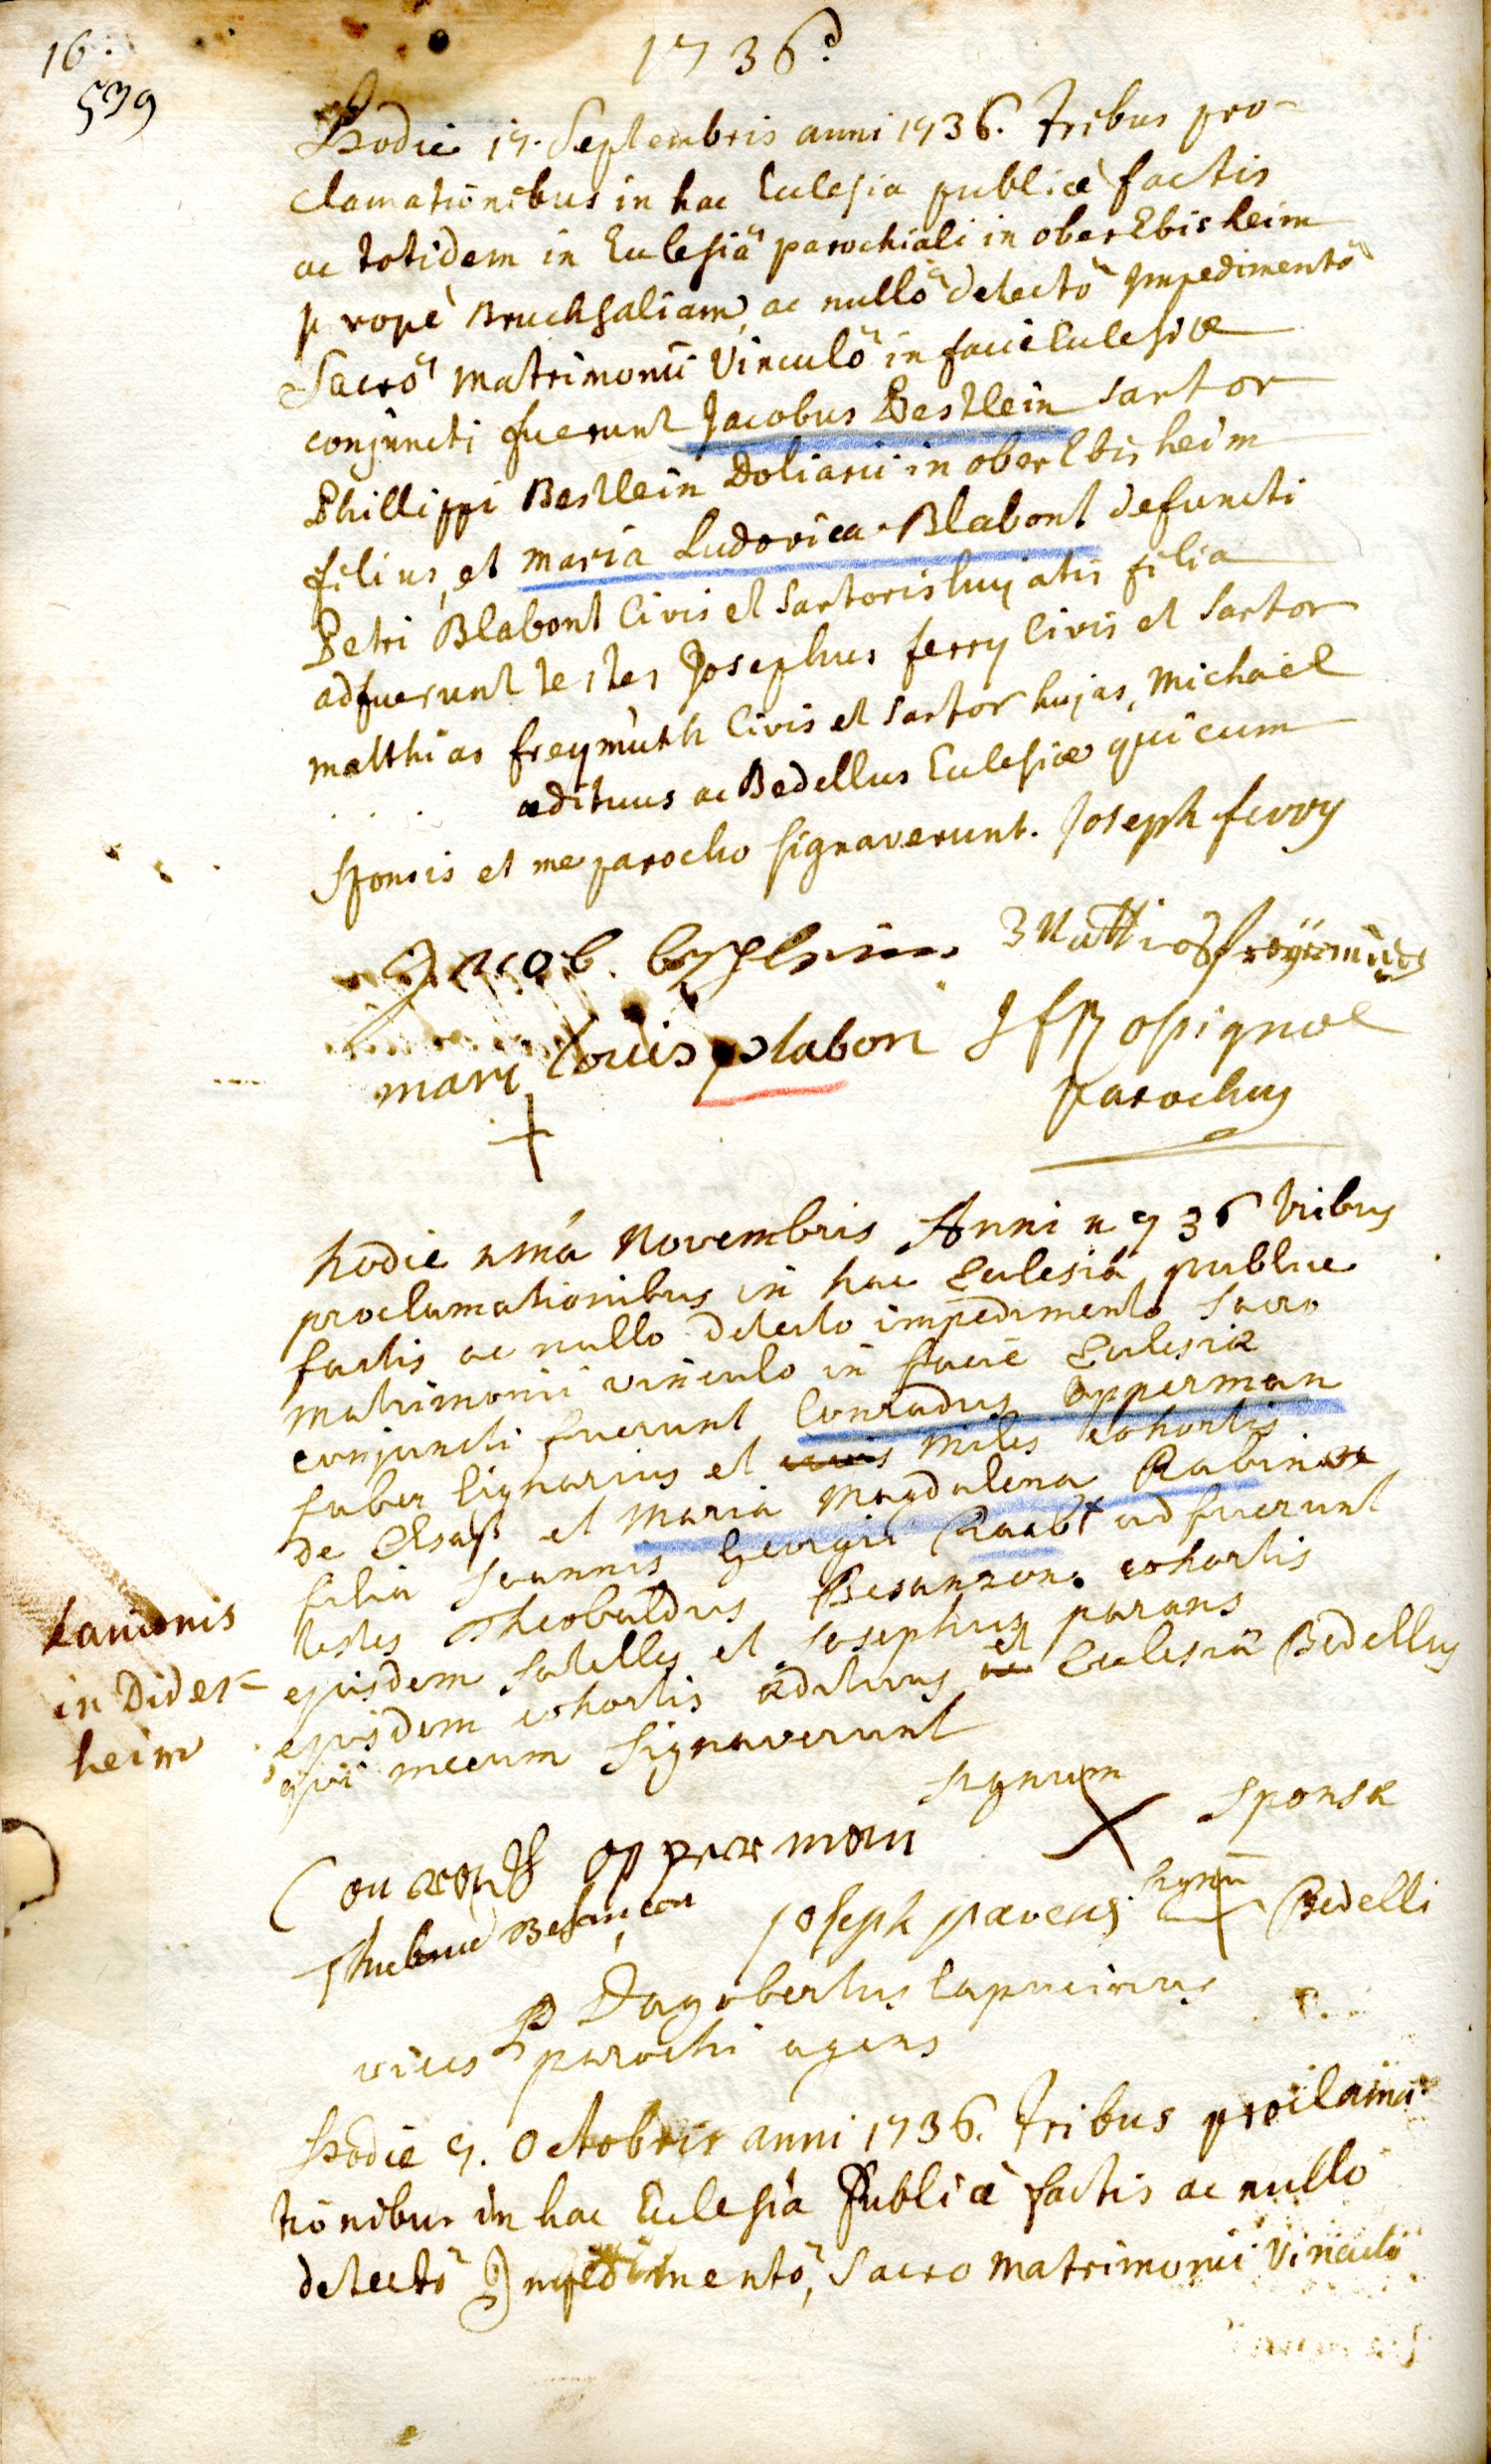 16.
539
1736.
Hodie 17. Septembris anni 1736. Tribus pro-
clamationibus in hac Eclesia publicè factis
ac totidem in Eclesiâ parochiali in ober Ebisheim
propè Bruchsaliam, ac nullô detectô Impedimentô
Sacrô matrimonii Vinculô in facie Eclesiæ
conjuncti fuerunt Jacobus Bestlein sartor
Phillippi Bestlein Doliarii in ober Ebisheim
filius, et maria Ludovica Blabont defuncti
Petri Blabont Civis et Sartoris hujatis filia
adfuerunt testes Josephus ferry Civis et Sartor
matthias freymuth Civis et Sartor hujas, Michaël
ædituus ac Bedellus Eclesiæ qui cum
sponsis et me parocho signaverunt. Joseph ferry
Jacob
mari Louis plabon
parochus
hodie Novembris Anni 1736 tribus
proclamationibus in hac Eclesiâ publice
factis ac nullo detecto impedimento sacro
matrimonii vinculo in facie Eclesiæ
conjuncti fuerunt Conradus Opperman
faber lignarius et miles cohortis
de Elsass et Maria Magdalena Rabin
filia Joannis Georgii Raab + adfuerunt
testes Theobaldus Besanzon cohortis
ejusdem satelles et Josephus parans
ejusdem cohortis ædituus et Eclesiæ Bedellus
qui mecum signaverunt
lanionis
in Dider=
heim
signum sponsæ
opperman
Besançon Joseph Bedelli
P Dagobertus Capucinus
vices parochi agens
Hodie 7. Octobris anni 1736. Tribus proclama-
tionibus in hac Eclesia Publicè factis ac nullo
detectô Impedimentô, Sacro matrimonii Vinculô